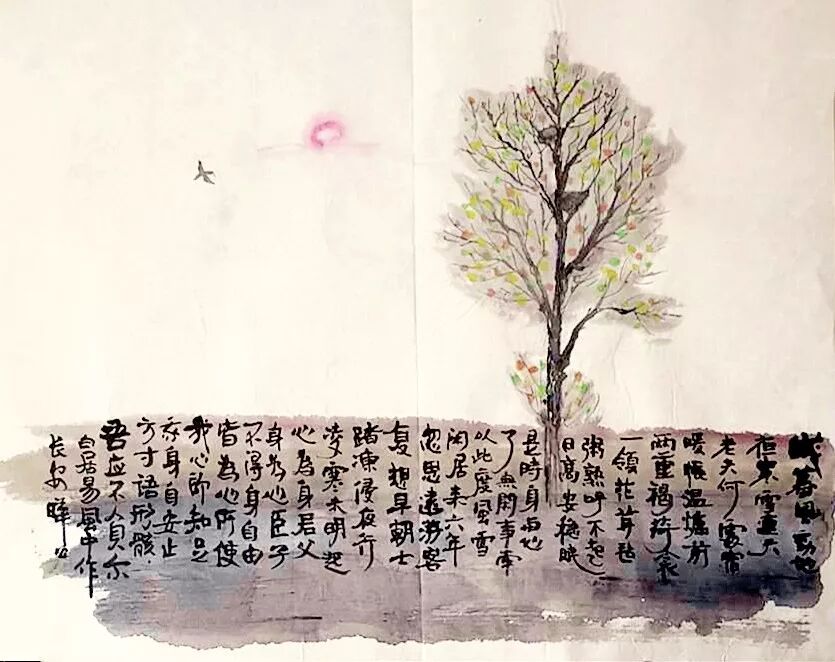 歲暮風動地
夜寒雪連天
老夫何處宿
暖帳温爐前
兩重褐綺衾
一領花茸毡
粥熟呼不起
日高安穩眠
是時身与
了無閑事牽
以此度風雪
闲居来六年
忽思遠游客
复想早朝士
踏凍侵夜行
凌寒未明起
心為身君父
身為心臣子
不得身自由
皆為心所使
我心即知足
身自安止
方寸語形骸
吾应不負尔
白居易風中作
长安